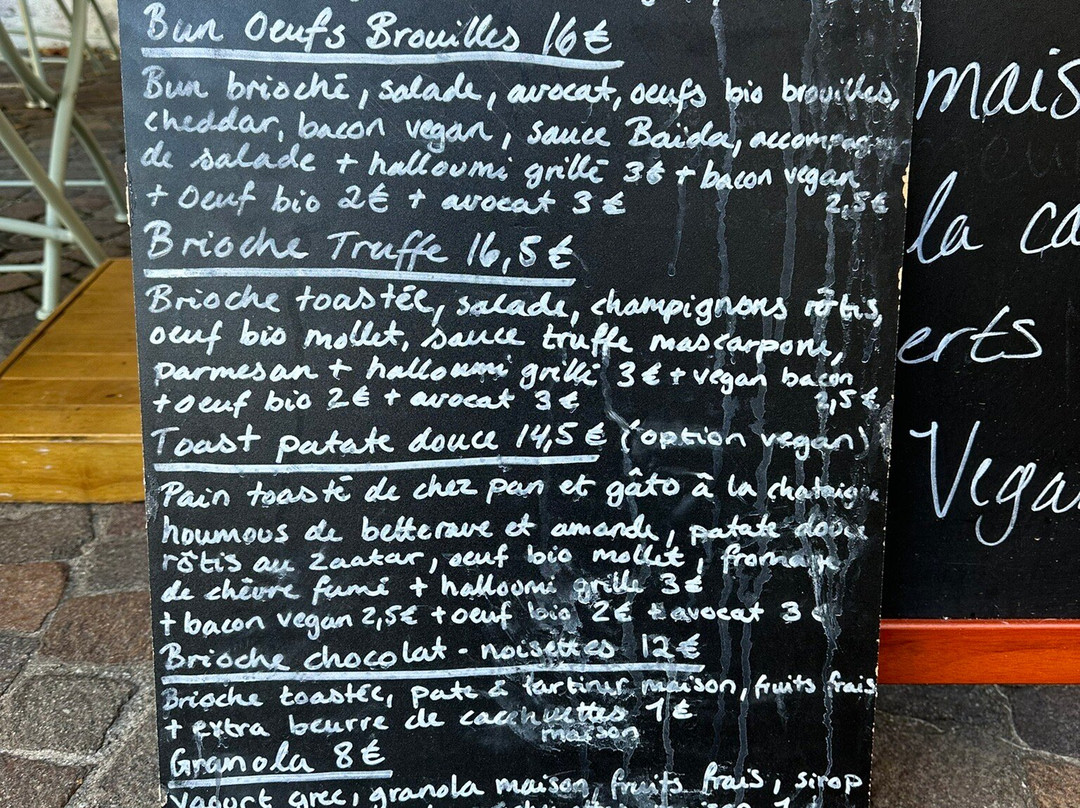 Bun Oeufs Brouillés 16€
Bun brioché, salade, avocat, oeufs bio brouillés,
cheddar, bacon vegan, sauce Baïda, accompagn
de salade + halloumi grillé 3€ + bacon vegan
+ oeuf bio 2€ + avocat 3€ 2,5€
Brioche Truffe 16,5€
Brioche toastée, salade, champignons rôtis,
oeuf bio mollet, sauce truffe mascarpone,
parmesan + halloumi grillé 3€ + vegan bacon
+ oeuf bio 2€ + avocat 3€ 2,5€
Toast patate douce 14,5€ (option vegan)
Pain toasté de chez pan et gâto à la chataign
houmous de betterave et amande, patate douce
rôtis au zaatar, oeuf bio mollet, fromage
de chèvre fumé + halloumi grillé 3€
+ bacon vegan 2,5€ + oeuf bio 2€ + avocat 3€
Brioche chocolat - noisettes 12€
Brioche toastée, pate à tartiner maison, fruits frais
+ extra beurre de cacahuettes 1€
maison
Granola 8€
yaourt grec, granola maison, fruits frais, sirop
mais
la ca
erts
Vega